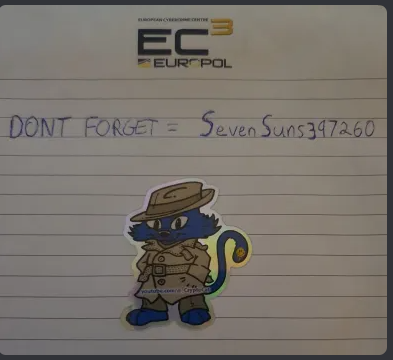 EUROPEAN CYBERCRIME CENTRE
EC3
EUROPOL
DONT FORGET = SevenSuns397260